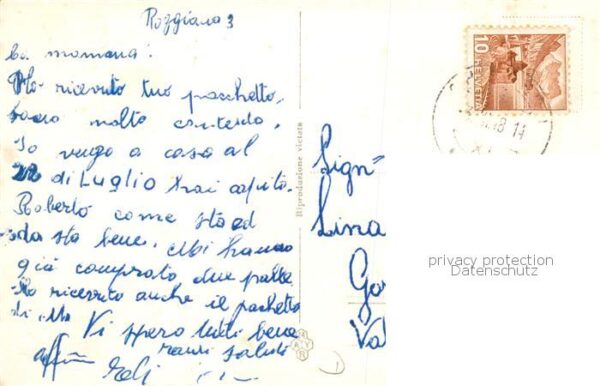 Roggiano 3
Ca mammana!
Ho ricevuto tuo pacchetto
sono molto contento.
Io vengo a casa al
22 di Luglio hai capito.
Roberto come sta ed
sta bene. Mi hanno
già comprato due palle
Ho ricevuto anche il pachetto
di
Vi spero tutti bene
saluti
Riproduzione vietata
Sign
Lina
Ga
Va
10
HELVETIA
18 14
privacy protection
Datenschutz